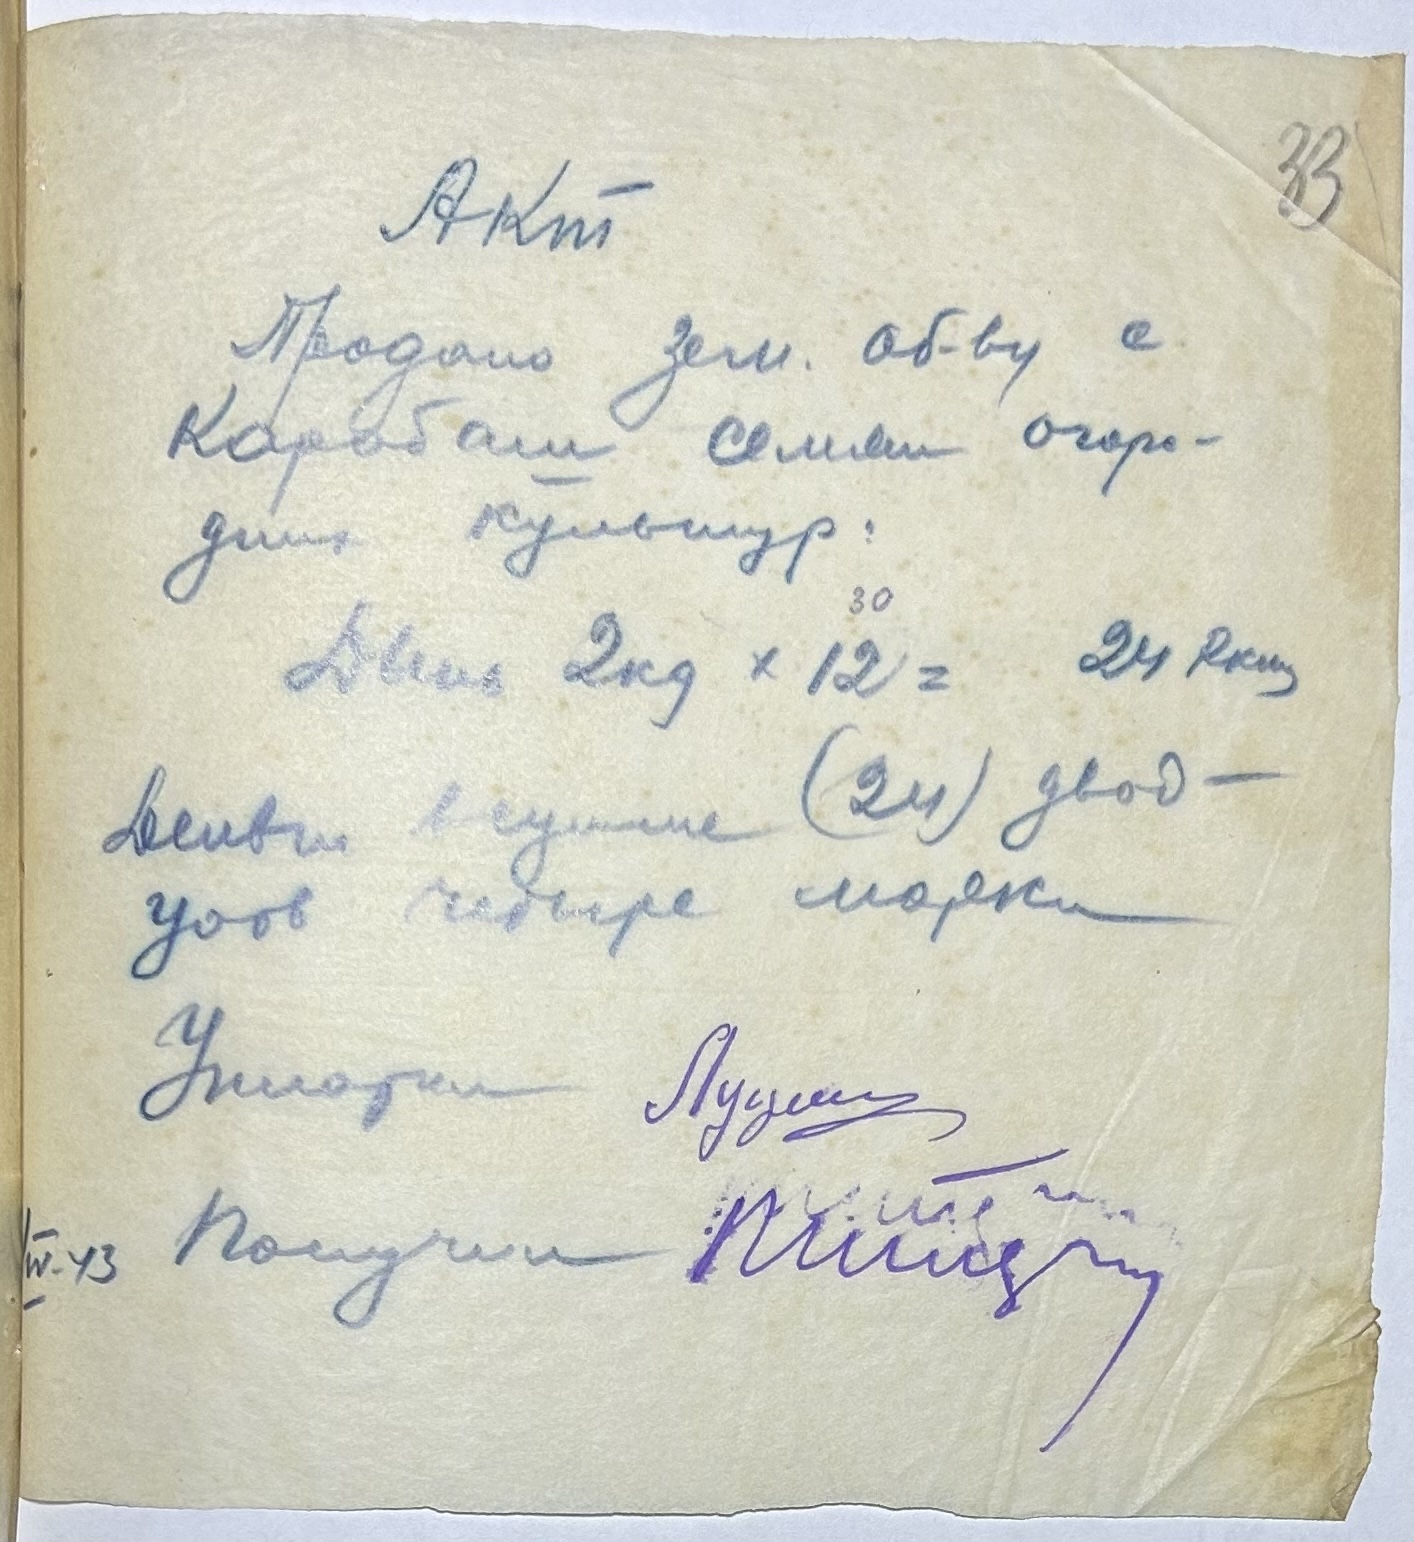 33
Акт
Продано зем. об-ву с.
Карабаш семян огоро-
дных культур:
30
Дынь 2кг х 12 = 24 Rкм
Деньги в сумме (24) двад-
цать четыре марки
Уплатил
Получил
IV-43